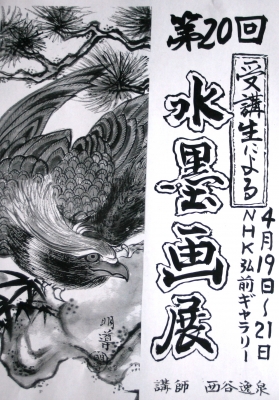 第20回
受講生による
水墨画展
4月19日〜21日
NHK弘前ギャラリー
講師 西谷逸泉